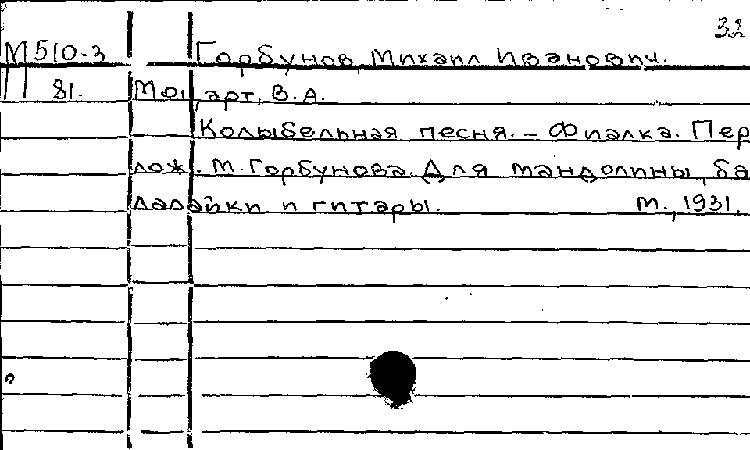 32
М510-3 Горбунов, Михаил Иванович.
81. Моцарт, В.А.
Колыбельная песня. – Фиалка. Пер
лож. М. Горбунова. Для мандолины, ба
лалайки и гитары. М., 1931.